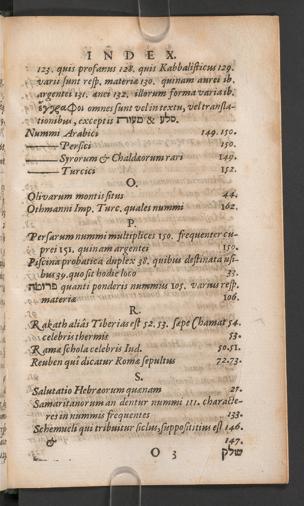 INDEX.
123. quis profanus 128. quis Kabbalisticus 129.
varii sunt resp. materiæ 130. quinam aurei ib.
argentei 131. ænei 132. illorum forma varia ib.
ἔγγραφοι omnes sunt vel in textu, vel transla-
tionibus, exceptis סלע & מעות.
Nummi Arabici 149. 150.
——— Persici 150.
——— Syrorum & Chaldæorum rari 149.
——— Turcici 152.
O.
Olivarum montis situs 44.
Othmanni Imp. Turc. quales nummi 162.
P.
Persarum nummi multiplices 150. frequenter cu-
prei 151. quinam argentei 150.
Piscina probatica duplex 38. quibus destinata usi-
bus 39. quo sit hodie loco 33.
פרוטה quanti ponderis nummus 105. varius resp.
materiæ 106.
R.
Rakath aliâs Tiberias est 52. 53. sæpe Chamat 54.
celebris thermis 53.
Rama schola celebris Iud. 50. 51.
Reuben qui dicatur Romæ sepultus 72-73.
S.
Salutatio Hebræorum quænam 21.
Samaritanorum an dentur nummi 111. characte-
res in nummis frequentes 133.
Schemueli qui tribuitur siclus, supposititius est 146.
& 147.
O 3 שלק